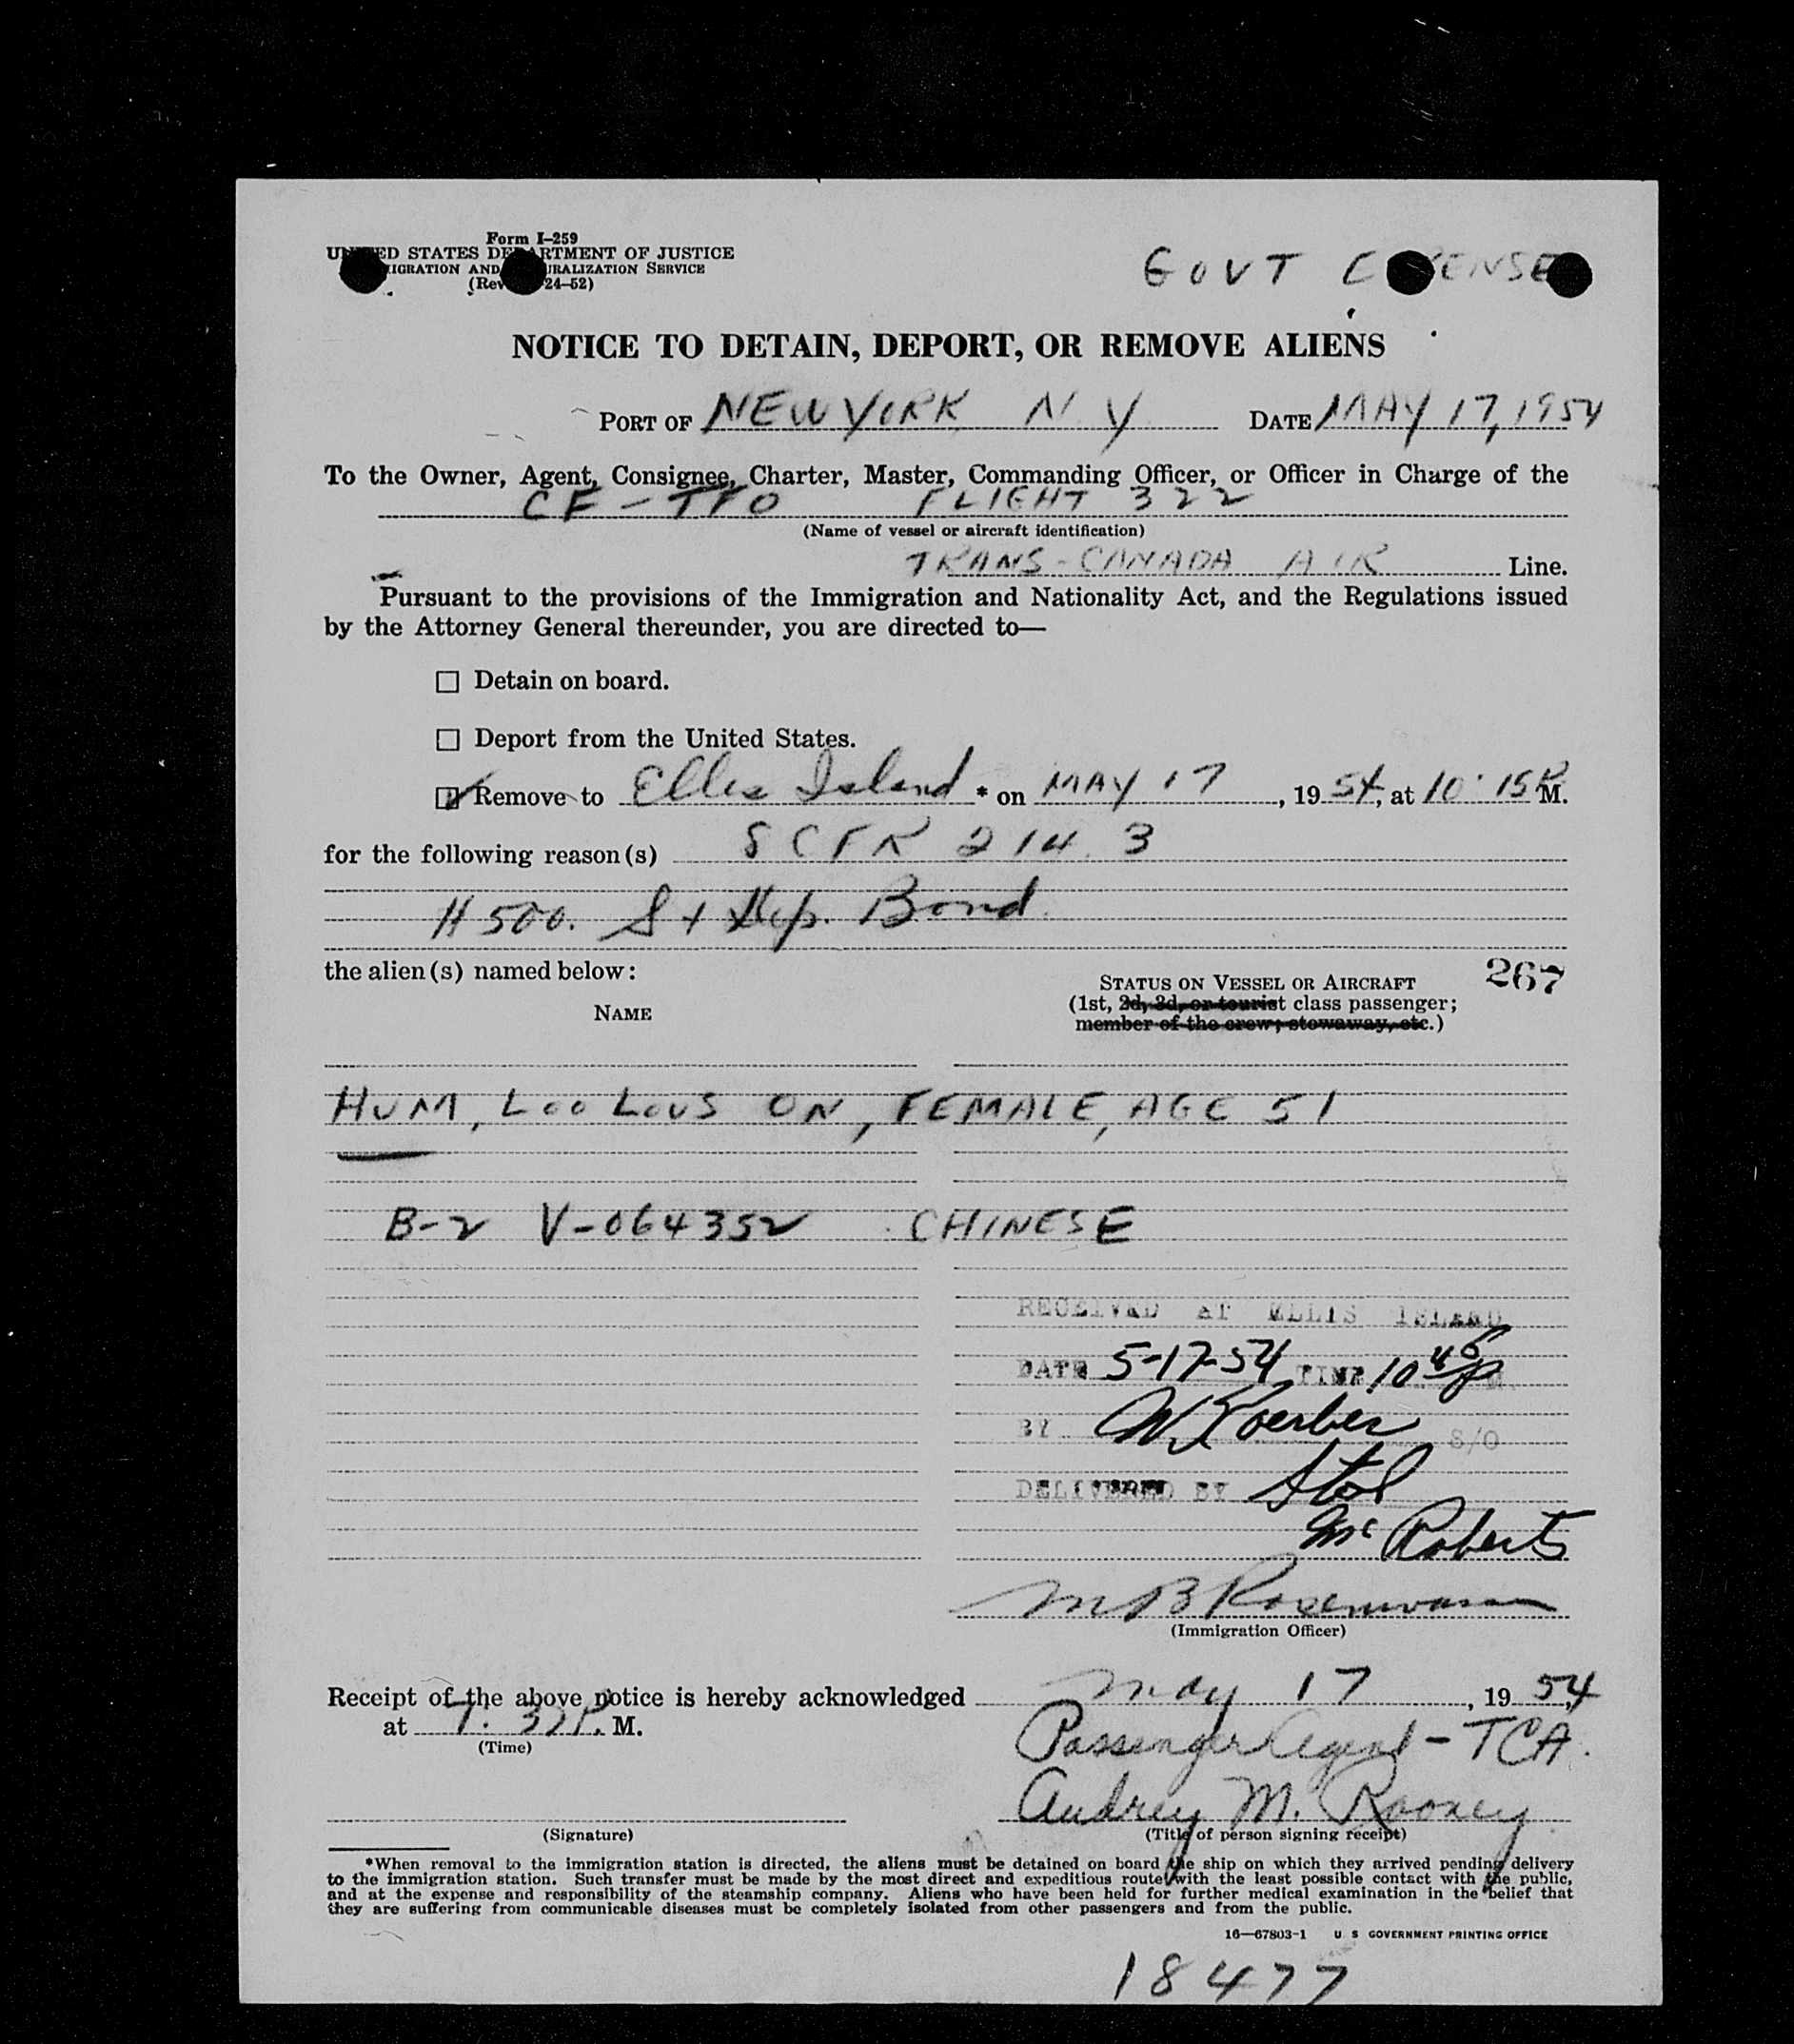 Form I-259
UNITED STATES DEPARTMENT OF JUSTICE
IMMIGRATION AND NATURALIZATION SERVICE
(Rev. 24-52)
GOVT EXPENSE
NOTICE TO DETAIN, DEPORT, OR REMOVE ALIENS
PORT OF NEW YORK N. Y. DATE MAY 17, 1954
To the Owner, Agent, Consignee, Charter, Master, Commanding Officer, or Officer in Charge of the
CF-TFO FLIGHT 322
(Name of vessel or aircraft identification)
TRANS-CANADA AIR Line.
Pursuant to the provisions of the Immigration and Nationality Act, and the Regulations issued
by the Attorney General thereunder, you are directed to—
☐ Detain on board.
☐ Deport from the United States.
☑ Remove to Ellis Island * on MAY 17, 1954, at 10:15 P.M.
for the following reason(s) 8 CFR 214.3
500. S + Dep. Bond.
the alien(s) named below:
NAME
STATUS ON VESSEL OR AIRCRAFT
(1st, 2d, 3d, or tourist class passenger;
member of the crew; stowaway, etc.)
267
HUM, Loo Lous ON, FEMALE, AGE 51
B-2 V-064352 CHINESE
RECEIVED AT ELLIS ISLAND
DATE 5-17-54 TIME 10 45 P M
BY W Koerber S/O
DELIVERED BY
Mc Roberts
(Immigration Officer)
Receipt of the above notice is hereby acknowledged May 17, 1954
at P. M.
(Time)
Passenger Agent - TCA.
Audrey M. Rooney
(Signature)
(Title of person signing receipt)
*When removal to the immigration station is directed, the aliens must be detained on board the ship on which they arrived pending delivery
to the immigration station. Such transfer must be made by the most direct and expeditious route with the least possible contact with the public,
and at the expense and responsibility of the steamship company. Aliens who have been held for further medical examination in the belief that
they are suffering from communicable diseases must be completely isolated from other passengers and from the public.
16—67803-1 U S GOVERNMENT PRINTING OFFICE
18477